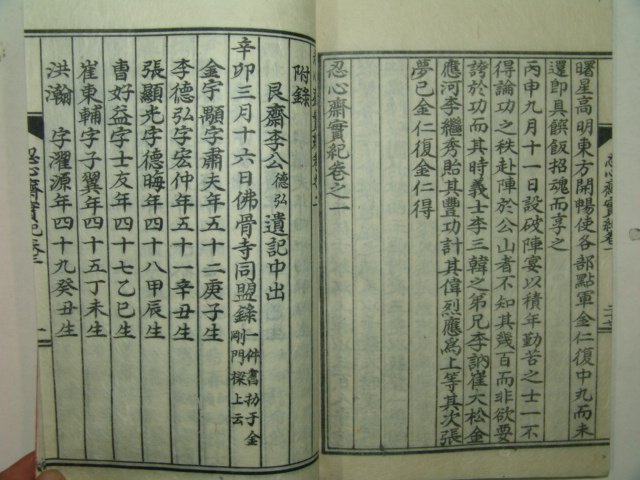 曙星高明東方開暢使各部點軍金仁復中丸而未
還卽具饌飯招魂而享之
丙申九月十一日設破陣宴以積年勤苦之士一不
得論功之秩赴陣於公山者不知其幾百而非欲要
誇於功而其時義士李三韓之弟兄李訥崔大松金
應河李繼秀貽其豐功計其偉烈應爲上等其次張
夢已金仁復金仁得
忍心齋實紀卷之一
附錄
艮齋李公德弘遺記中出
辛卯三月十六日佛骨寺同盟錄一件書扐于金剛門樑上云
金宇顒字肅夫年五十二庚子生
李德弘字宏仲年五十一辛丑生
張顯光字德晦年四十八甲辰生
曹好益字士友年四十七乙巳生
崔東輔字子翼年四十五丁未生
洪瀚字濯源年四十九癸丑生